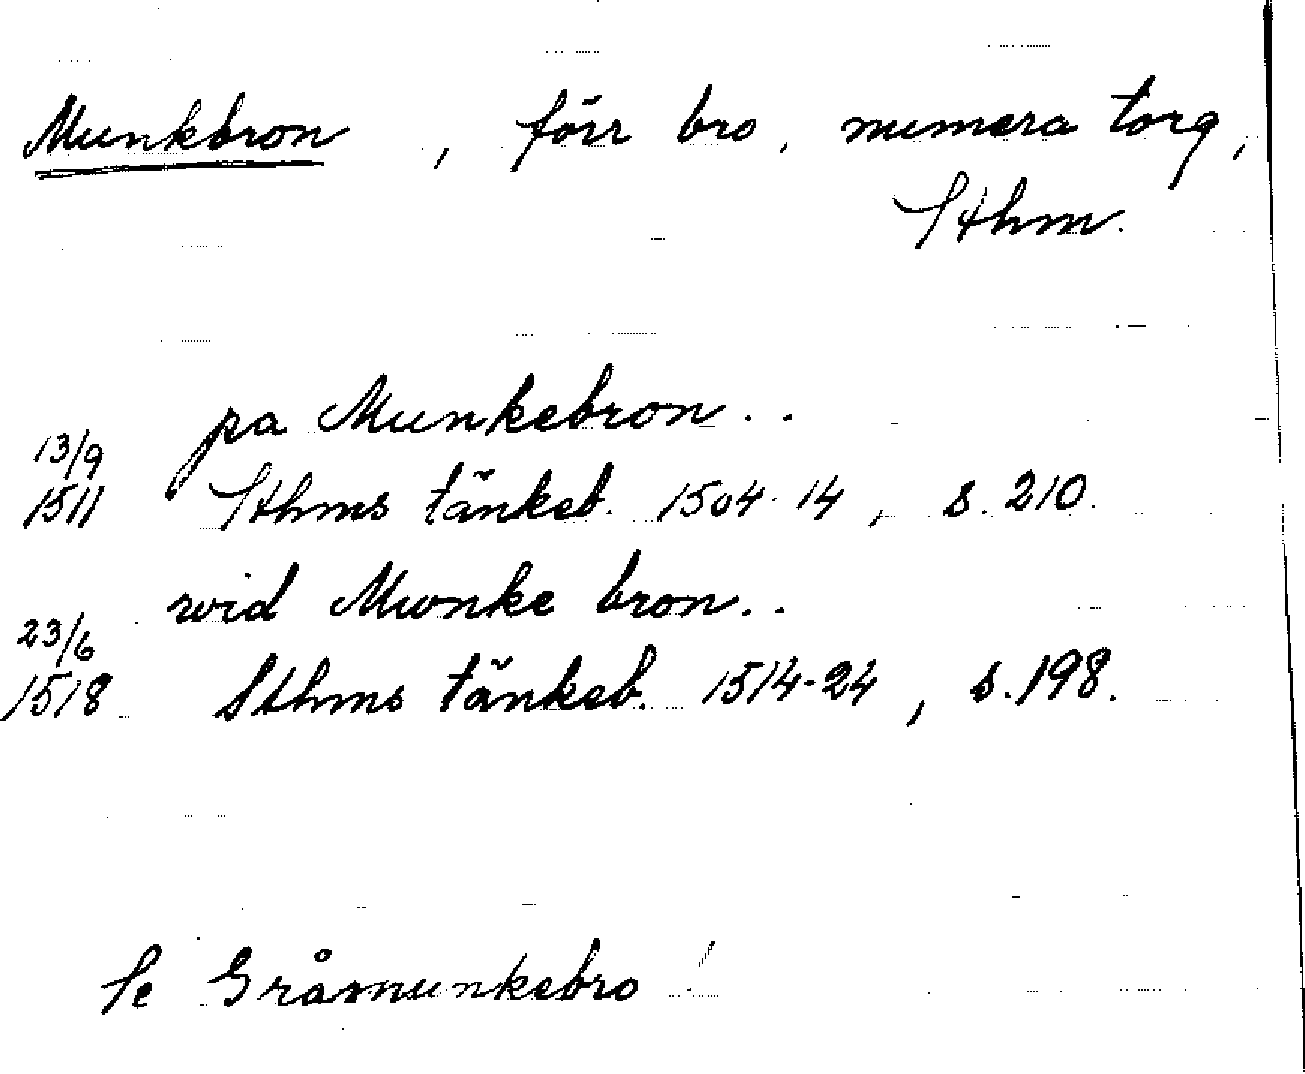 Munkbron, förr bro, numera torg,
Sthm.
pa Munkebron..
13/9
1511 Sthms tänkeb. 1504-14, s. 210.
wid Mwnke bron..
23/6
1518 Sthms tänkeb. 1514-24, s. 198.
Se Gråmunkebro!